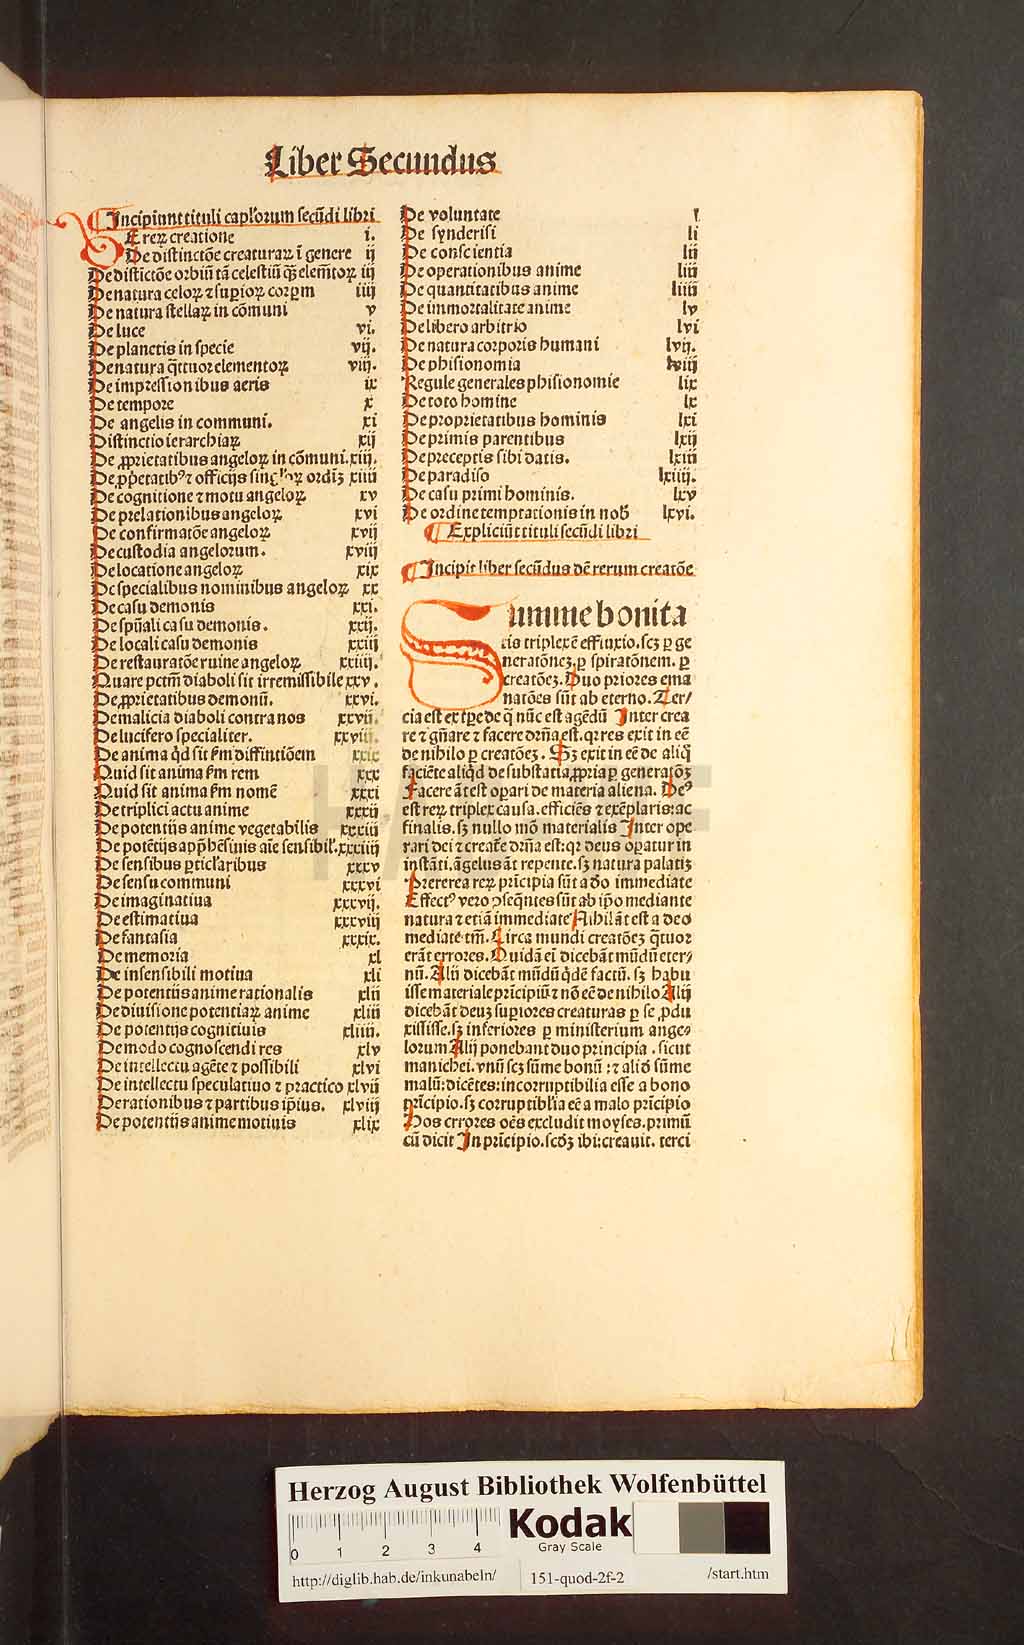 Liber Secundus
¶ Incipiunt tituli capl'orum secūdi libri
DE reꝝ creatione i.
De distinctōe creaturaꝝ ī genere ij
De distictōe orbiū tā celestiū qȝ elemētoꝝ iij
De natura celoꝝ ⁊ supioꝝ corpm iiij
De natura stellaꝝ in cōmuni v
De luce vi.
De planetis in specie vij.
De natura q̄ttuor elementoꝝ viij.
De impressionibus aeris ix
De tempore x
De angelis in communi. xi
Distinctio ierarchiaꝝ xij
De ꝓprietatibus angeloꝝ in cōmuni. xiij.
De ꝓpetatibꝰ ⁊ officijs singloꝝ ordīȝ xiiij
De cognitione ⁊ motu angeloꝝ xv
De prelationibus angeloꝝ xvi
De confirmatōe angeloꝝ xvij
De custodia angelorum. xviij
De locatione angeloꝝ xix
De specialibus nominibus angeloꝝ xx
De casu demonis xxi.
De spūali casu demonis. xxij.
De locali casu demonis xxiij
De restauratōe ruine angeloꝝ xxiiij.
Quare pctm̄ diaboli sit irremissibile xxv.
De ꝓprietatibus demonū. xxvi.
De malicia diaboli contra nos xxvij.
De lucifero specialiter. xxviij.
De anima q̇d sit ẜm diffinitiōem xxix
Quid sit anima ẜm rem xxx
Quid sit anima ẜm nomē xxxi
De triplici actu anime xxxij
De potentijs anime vegetabilis xxxiij
De potētijs apphēsiuis aīe sensibil'. xxxiiij
De sensibus ꝑticl'aribus xxxv
De sensu communi xxxvi
De imaginatiua xxxvij.
De estimatiua xxxviij
De fantasia xxxix.
De memoria xl
De insensibili motiua xli
De potentijs anime rationalis xlij
De diuisione potentiaꝝ anime xliij
De potentijs cognitiuis xliiij.
De modo cognoscendi res xlv
De intellectu agēte ⁊ possibili xlvi
De intellectu speculatiuo ⁊ practico xlvij
De rationibus ⁊ partibus ip̄ius. xlviij
De potentijs anime motiuis xlix
De voluntate l
De synderisi li
De conscientia lij
De operationibus anime liij
De quantitatibus anime liiij
De immortalitate anime lv
De libero arbitrio lvi
De natura corporis humani lvij.
De phisionomia lviij
Regule generales phisionomie lix
De toto homine lx
De proprietatibus hominis lxi
De primis parentibus lxij
De preceptis sibi datis. lxiij
De paradiso lxiiij.
De casu primi hominis. lxv
De ordine temptationis in nob̄ lxvi.
¶ Expliciūt tituli secūdi libri
¶ Incipit liber secūdus dē rerum creatōe
Summe bonita
tis triplex ē effluxio. scȝ ꝑ ge
neratōneȝ. ꝑ spiratōnem. ꝑ
creatōeȝ. Duo priores ema
natōes sūt ab eterno. Ter/
cia est ex tpe de q̄ nūc est agēdū Inter crea
re ⁊ gn̄are ⁊ facere drn̄a est. qꝛ res exit in eē
de nihilo ꝑ creatōeȝ. Sȝ exit in eē de aliq̇
faciēte aliq̇d de substātia ꝓpria ꝑ generatōȝ
Facere āt est opari de materia aliena. Deꝰ
est reꝝ triplex causa. efficiēs ⁊ exēplaris: ac
finalis. sȝ nullo mō materialis Inter ope
rari dei ⁊ creat̄e drn̄a est: qꝛ deus opatur in
instāti. āgelus āt repente. sȝ natura palatiȝ
Preterea reꝝ prīcipia sūt a dō immediate
Effectꝰ vero ꝯseq̄ntes sūt ab ip̄o mediante
natura ⁊ etiā immediate Nihil āt est a deo
mediate tm̄. Circa mundi creatōeȝ q̄tuor
erāt errores. Quidā ei dicebāt mūdū eter/
nū. Alij dicebāt mūdū q̇dē factū. sȝ habu
isse materiale prīcipiū ⁊ nō eē de nihilo Alij
dicebāt deuȝ supiores creaturas ꝑ se ꝓdu
xisse. sȝ inferiores ꝑ ministerium ange/
lorum Alij ponebant duo principia. sicut
manichei. vnū scȝ sūme bonū: ⁊ aliō sūme
malū: dicētes: incorruptibilia esse a bono
prīcipio. sȝ corruptiblia eē a malo prīcipio
Hos errores oēs excludit moyses. primū
cū dicit In prīcipio. scdȝ ibi: creauit. terci
Herzog August Bibliothek Wolfenbüttel
0 1 2 3 4
Kodak
Gray Scale
http://diglib.hab.de/inkunabeln/ 151-quod-2f-2 /start.htm